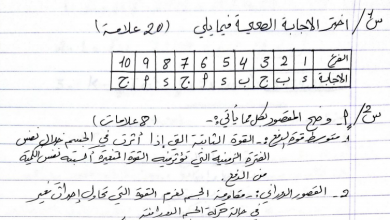 س1/ اختر الاجابة الصحيحة فيما يلي (20 علامة)
الفرع 1 2 3 4 5 6 7 8 9 10
الاجابة د ب ج ب د أ ج د أ ج
س2/ أ- وضح المقصود بكل مما يأتي:- (8 علامات)
1- متوسط قوة الدفع:- القوة الثابتة التي إذا أثرت في الجسم خلال نفس
الفترة الزمنية التي تؤثر فيه القوة المتغيرة أكسبته نفس الكمية
من الدفع.
2- القصور الدوراني:- مقاومة الجسم لعزم القوة التي تحاول إحداث تغير
في حالة حركة الجسم الدورانية